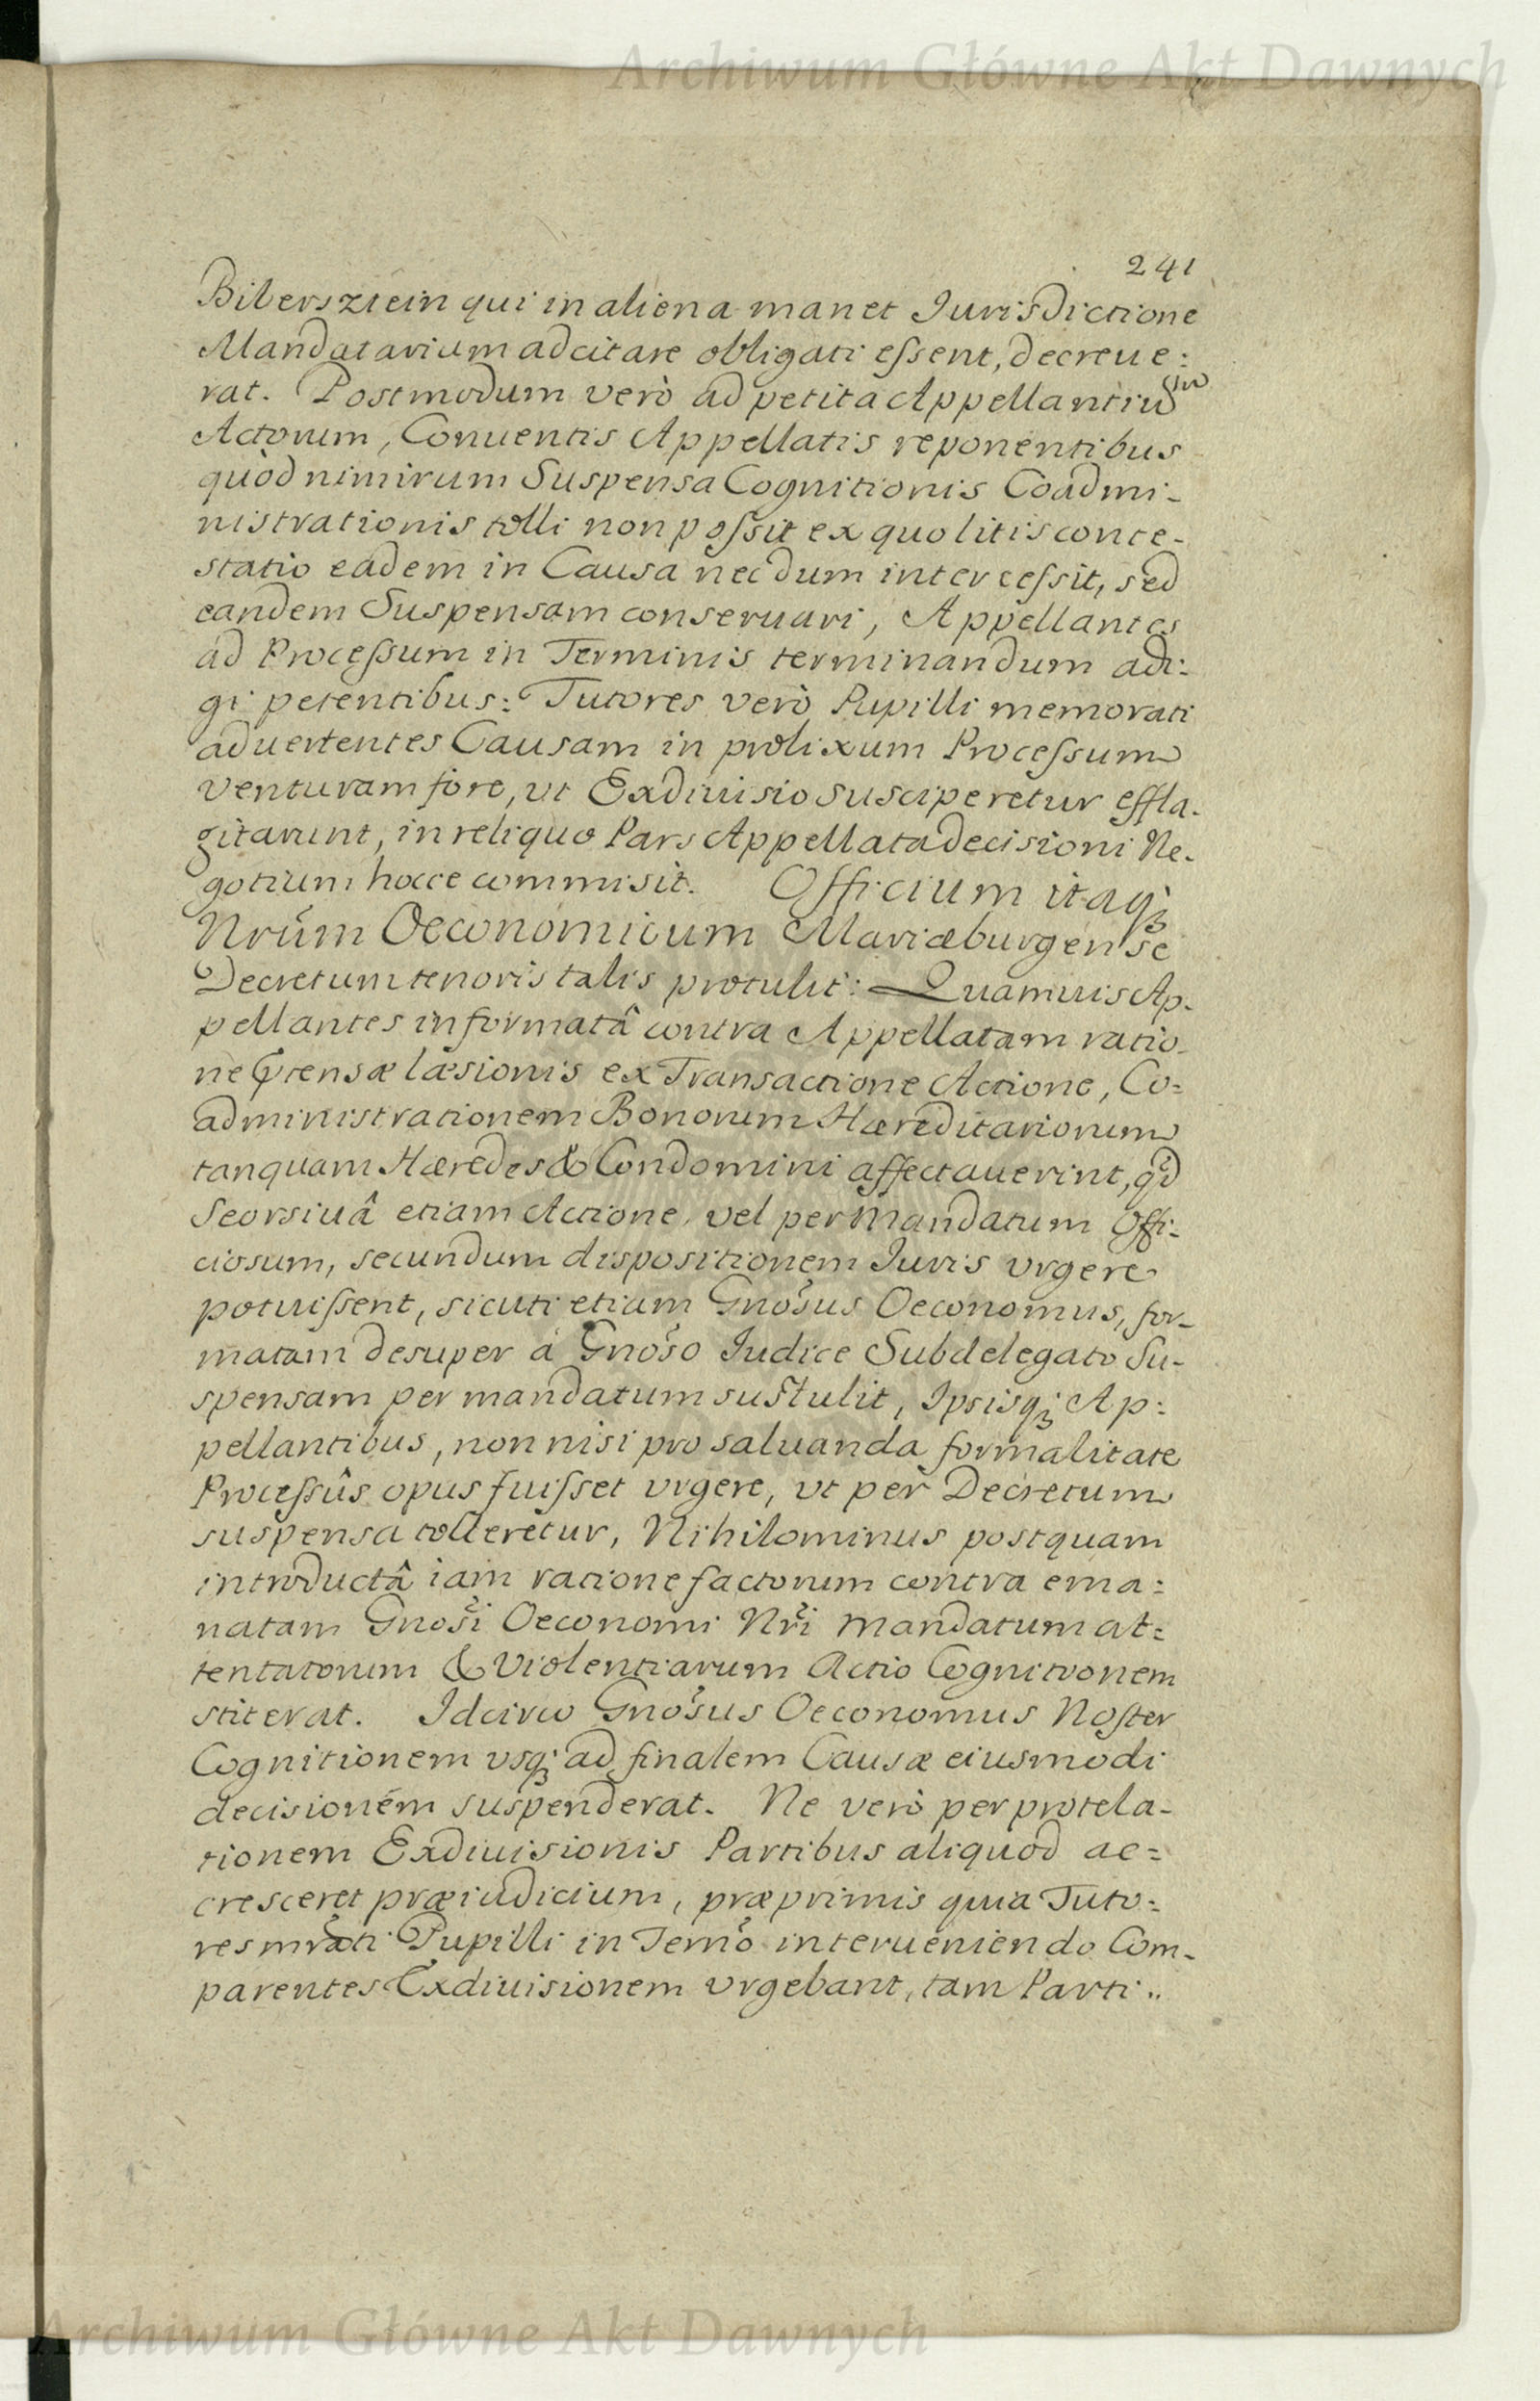 Archiwum Główne Akt Dawnych
241
Bibersztein qui in aliena manet Jurisdictione
Mandatarium adcitare obligati eſsent, decreue:
rat. Postmodum verò ad petita Appellantiũ
Actorum, Conuentis Appellatis reponentibus
quòd nimirum Suspensa Cognitionis Coadmi-
nistrationis tolli non poſsit ex quo litis conte-
statio eadem in Causa necdum interceſsit, sed
eandem Suspensam conseruari, Appellantes
ad Proceſsum in Terminis terminandum adi:
gi petentibus: Tutores verò Pupilli memorati
aduertentes Causam in prolixum Proceſsum
venturam fore, vt Exdiuisio susciperetur effla-
gitarunt, in reliquo Pars Appellata decisioni Ne-
gotium hocce commisit. Officium itaqꝫ
Nrũm Oeconomicum Mariæburgense
Decretum tenoris talis protulit: Quamuis Ap-
pellantes in formatâ contra Appellatam ratio-
ne Prtensæ læsionis ex Transactione Actione, Co-
administrationem Bonorum Hæreditariorum
tanquam Hæredes & Condomini affectauerint, qd̃
Seorsiuâ etiam Actione, vel per Mandatum Offi-
ciosum, secundum dispositionem Juris vrgere
potuiſsent, sicuti etiam Gnõsus Oeconomus, for-
matam desuper à Gnõso Judice Subdelegato Su-
spensam per mandatum sustulit, Ipsisqꝫ Ap:
pellantibus, non nisi pro saluanda formalitate
Proceſsûs opus fuiſset vrgere, vt per Decretum
suspensa tolleretur, Nihilominus postquam
introductâ iam ratione factorum contra ema:
natam Gnõsi Oeconomi Nrĩ mandatum at:
tentatorum & violentiarum Actio Cognitionem
stiterat. Idcirco Gnõsus Oeconomus Noſter
Cognitionem vsqꝫ ad finalem Causæ eiusmodi
decisionem suspenderat. Ne verò per protela-
tionem Exdiuisionis Partibus aliquod ac:
cresceret præiudicium, præprimis quia Tuto:
res mrãti Pupilli in Termõ interueniendo Com-
parentes Exdiuisionem vrgebant, tam Parti..
Archiwum Główne Akt Dawnych